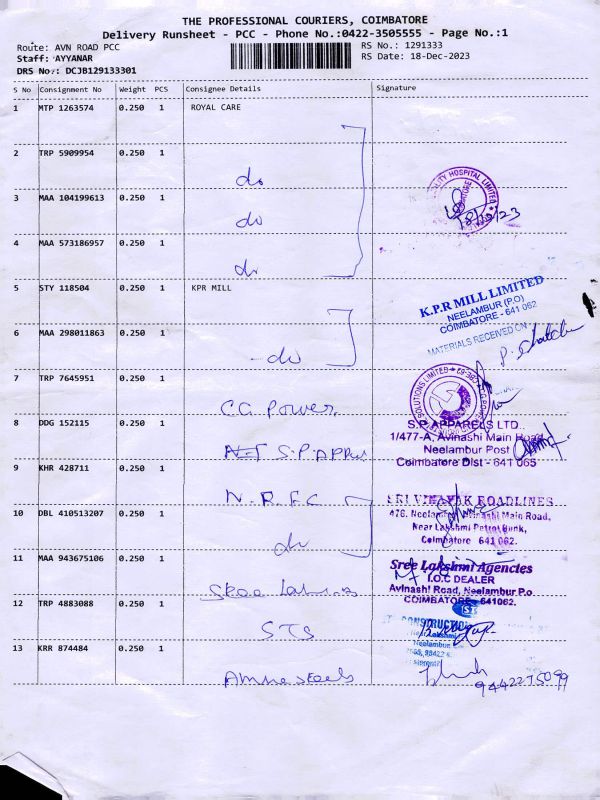 THE PROFESSIONAL COURIERS, COIMBATORE
Delivery Runsheet - PCC - Phone No.:0422-3505555 - Page No.:1
Route: AVN ROAD PCC
RS No.: 1291333
Staff: AYYANAR
RS Date: 18-Dec-2023
DRS No: DCJB129133301
S No Consignment No Weight PCS Consignee Details Signature
1 MTP 1263574 0.250 1 ROYAL CARE
2 TRP 5909954 0.250 1 do
3 MAA 104199613 0.250 1 do
4 MAA 573186957 0.250 1 do
HOSPITAL LIMITED
18/12/23
5 STY 118504 0.250 1 KPR MILL
K.P.R MILL LIMITED
NEELAMBUR (P.O)
COIMBATORE - 641 062
MATERIALS RECEIVED ON
6 MAA 298011863 0.250 1 do
7 TRP 7645951 0.250 1 CG Power
SOLUTIONS LIMITED
8 DDG 152115 0.250 1 S.P APPAR
S.P. APPARELS LTD.
1/477-A, Avinashi Main Road
Neelambur Post
Coimbatore Dist - 641 065
9 KHR 428711 0.250 1
10 DBL 410513207 0.250 1 do
SRI VINAYAK ROADLINES
Avinashi Main Road,
Near Lakshmi Petrol Bunk,
Coimbatore 641 062.
11 MAA 943675106 0.250 1 Sree
Sree Lakshmi Agencies
I.O.C DEALER
Avinashi Road, Neelambur P.o
COIMBATORE - 641062.
12 TRP 4883088 0.250 1 STS
CONSTRUCTION
Near Lakshmi
Neelambur
13 KRR 874484 0.250 1 steels
9442275099